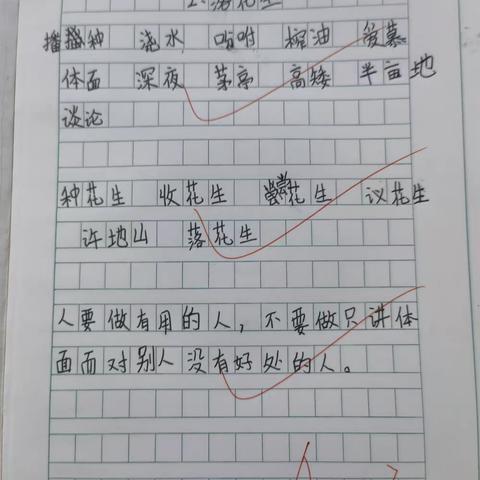 2.落花生
播种 浇水 吩咐 榨油 爱慕
体面 深夜 茅亭 高矮 半亩地
谈论
种花生 收花生 尝花生 议花生
许地山 落花生
人要做有用的人，不要做只讲体
面而对别人没有好处的人。